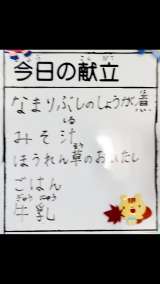 今日の献立
なまりぶしのしょうが煮
みそ汁
ほうれん草のおひたし
ごはん
牛乳